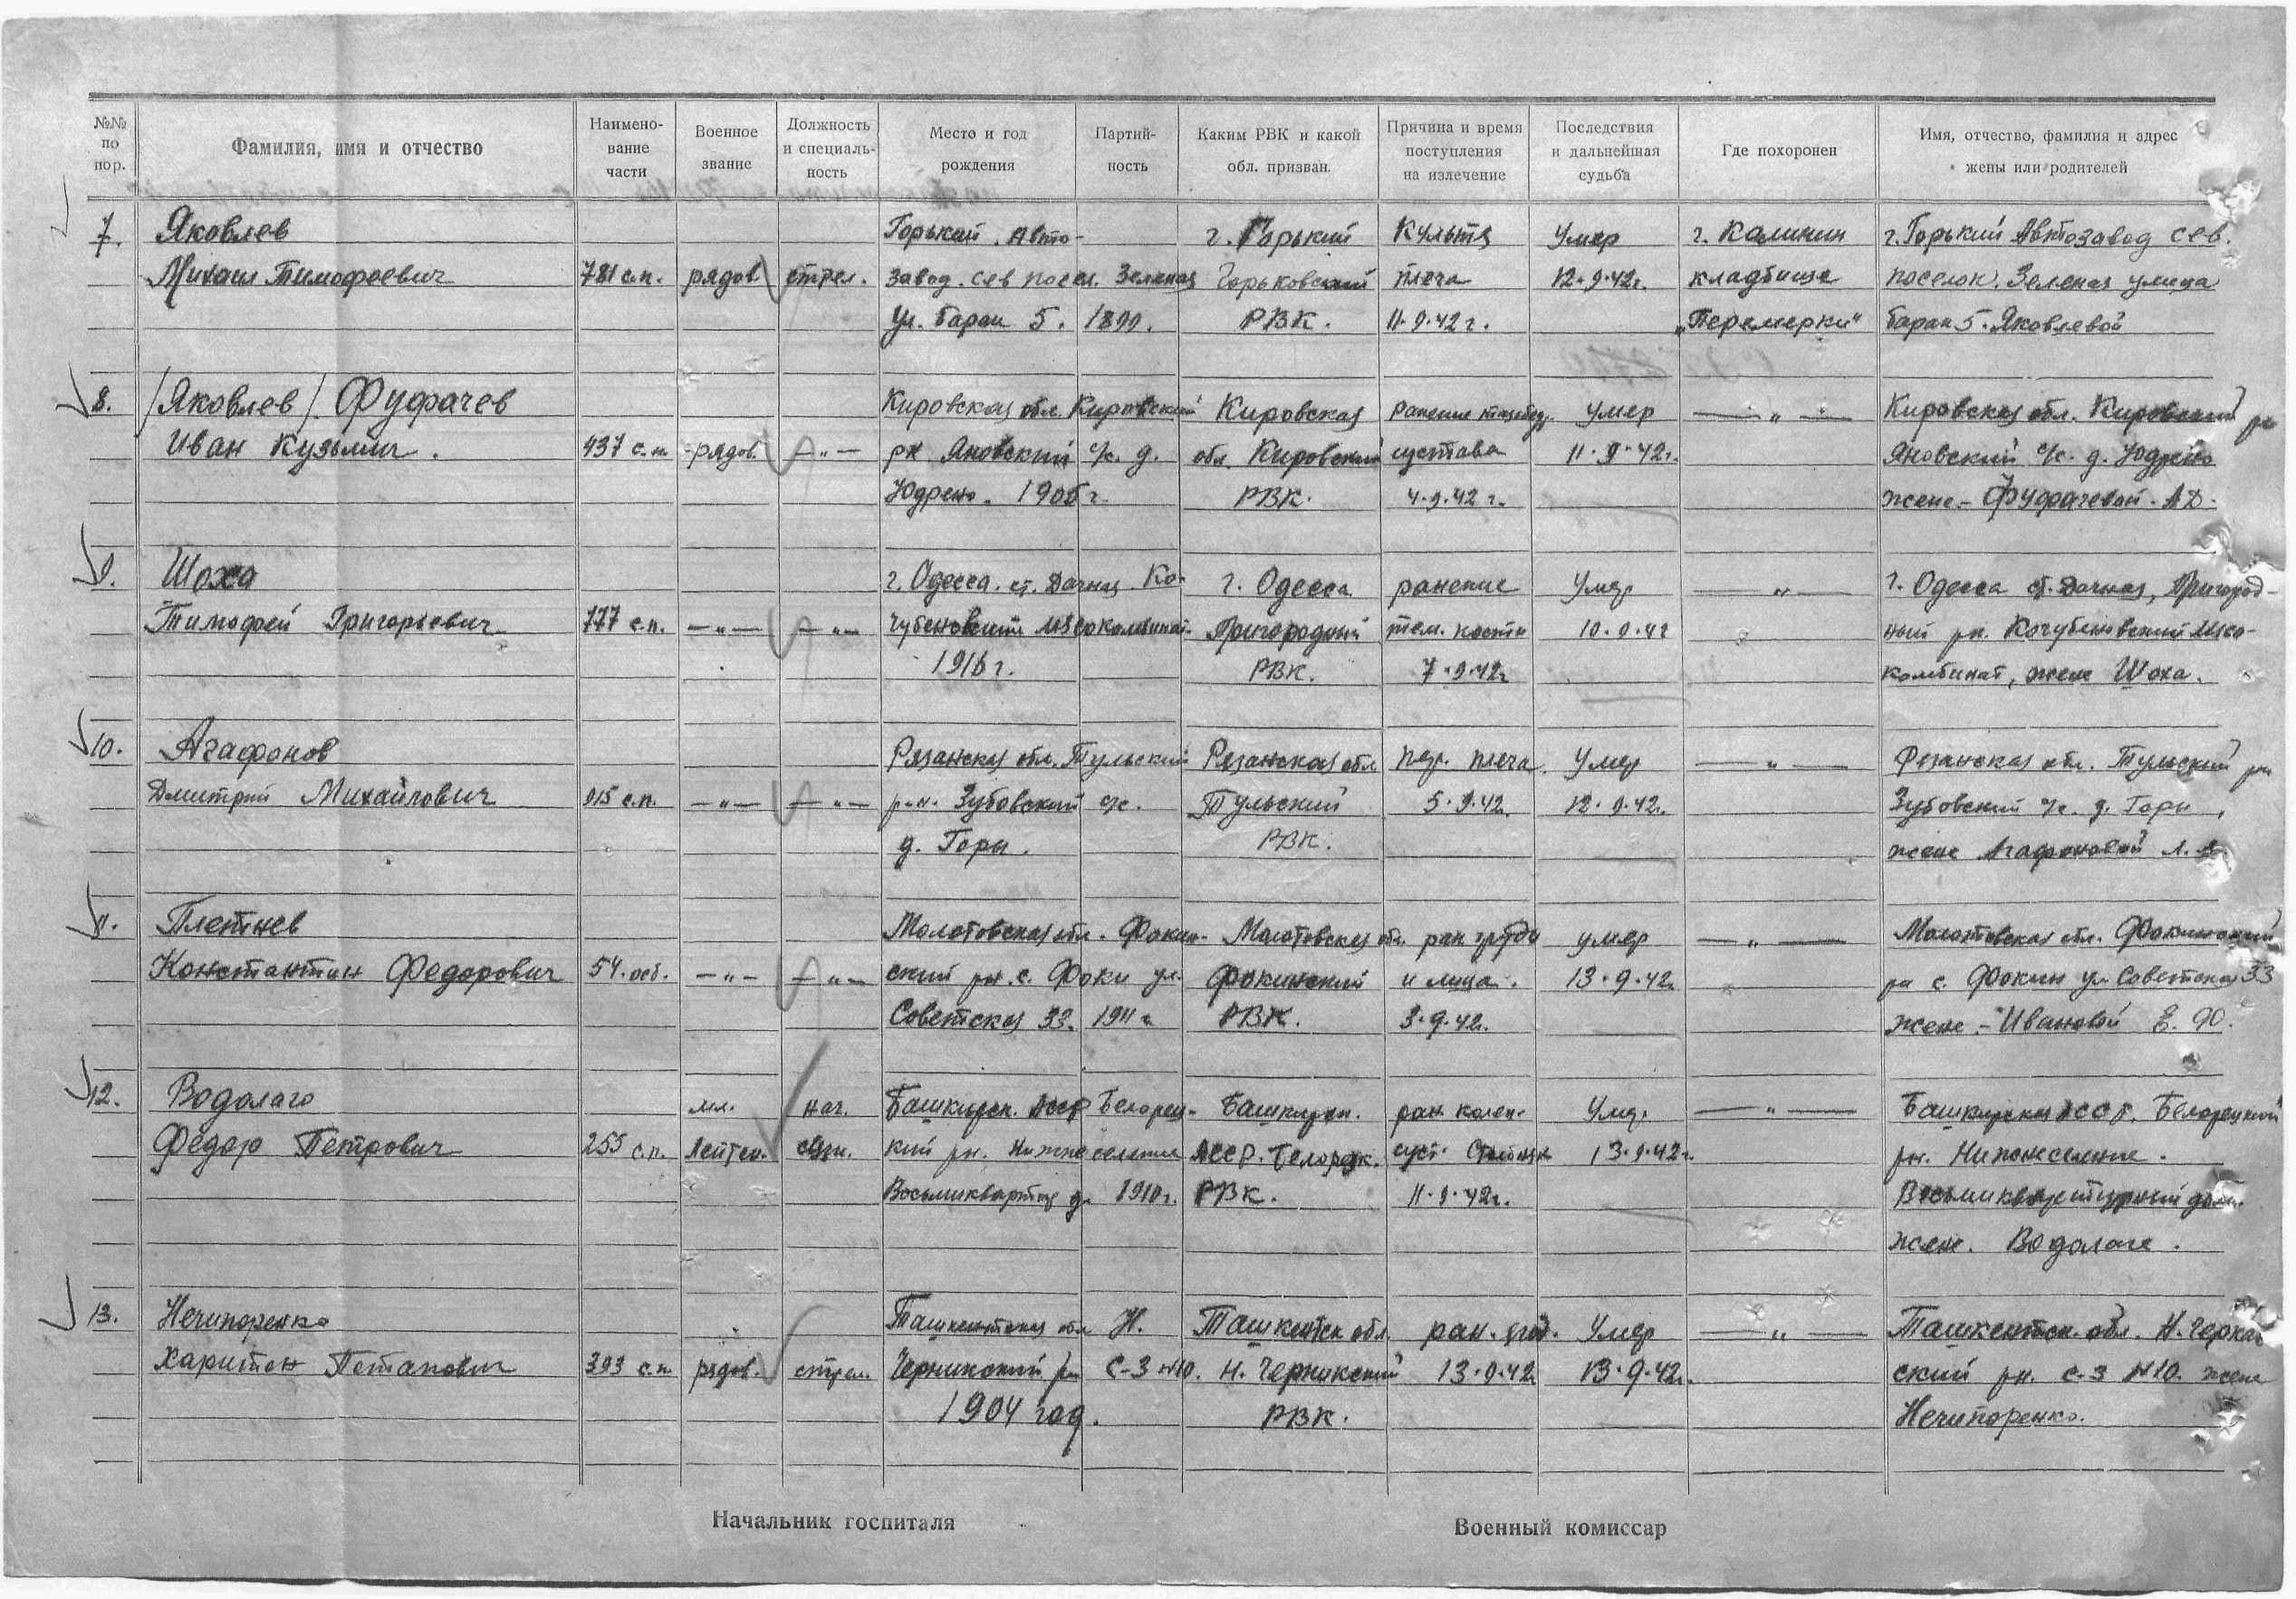 №№ по пор.
Фамилия, имя и отчество
Наимено- вание части
Военное звание
Должность и специаль- ность
Место и год рождения
Партий- ность
Каким РВК и какой обл. призван.
Причина и время поступления на излечение
Последствия и дальнейшая судьба
Где похоронен
Имя, отчество, фамилия и адрес жены или родителей
7. Яковлев Горький. Авто- г. Горький Культя Умер г. Калинин г. Горький Автозавод сев.
Михаил Тимофеевич 781 с.п. рядов. стрел. завод. сев посел. Зеленая Горьковский плеча 12.9.42г. кладбище поселок. Зеленая улица
ул. барак 5. 1899. РВК. 11.9.42 г. „Перемерки“ барак 5. Яковлевой
8. /Яковлев/. Фуфачев Кировская обл. Кировский Кировская ранение тазобедр. умер — „ — Кировская обл. Кировский рн
Иван Кузьмич. 937 с.п. рядов. — „ — рн Яновский с/с. д. обл. Кировский сустава 11.9.42г. Яновский с/с. д. Юдрено
Юдрено. 1905 г. РВК. 4.9.42 г. жене - Фуфачевой. А Д.
9. Шоха г. Одесса. ст. Дачная. Ко- г. Одесса ранение Умер — „ — г. Одесса ст. Дачная, Пригород-
Тимофей Григорьевич 777 с.п. — „ — — „ — чубеновский мясокомбинат. Пригородный тем. кости 10.9.42 ный рн. Кочубеновский мясо-
1916 г. РВК. 7.9.42г комбинат, жене Шоха.
10. Агафонов Рязанская обл. Тульский Рязанская обл пер. плеча. Умер — „ — Рязанская обл. Тульский рн
Дмитрий Михайлович 915 с.п. — „ — — „ — р-н. Зубовский с/с. Тульский 5.9.42. 12.9.42г. Зубовский с/с. д. Горы,
д. Горы. РВК. жене Агафоновой
11. Плетнев Молотовская обл. Фокин- Молотовская обл. ран груди умер — „ — Молотовская обл. Фокинский
Константин Федорович 54. осб. — „ — — „ — ский рн. с. Фоки ул. Фокинский и лица. 13.9.42г. рн с. Фокин ул Советская 33
Советская 33. 1911 г. РВК. 3.9.42г. жене - Ивановой Е. Ф.
12. Водолаго мл. нач. Башкирск. АССР Белорец- Башкирск. ран. колен. Умер. — „ — Башкирская АССР. Белорецкий
Федор Петрович 255 с.п. лейтен. связи. кий рн. Нижне селение АССР. Белорецк. суст. 13.9.42г. рн. Нижнеселение.
Восьмиквартир д. 1910г. РВК. 11.9.42г. Восьмиквартирный дом.
жене. Водолаге.
13. Нечипоренко Ташкентская обл Н. Ташкентск обл. ран. Умер — „ — Ташкентск. обл. Н. Черкас
Харитон Потапович 393 с.п. рядов. стрел. Черникский рн С-З №10. Н. Черникский 13.9.42 13.9.42г. ский рн. с-з №10. жене
1904 год. РВК. Нечипоренко.
Начальник госпиталя
Военный комиссар